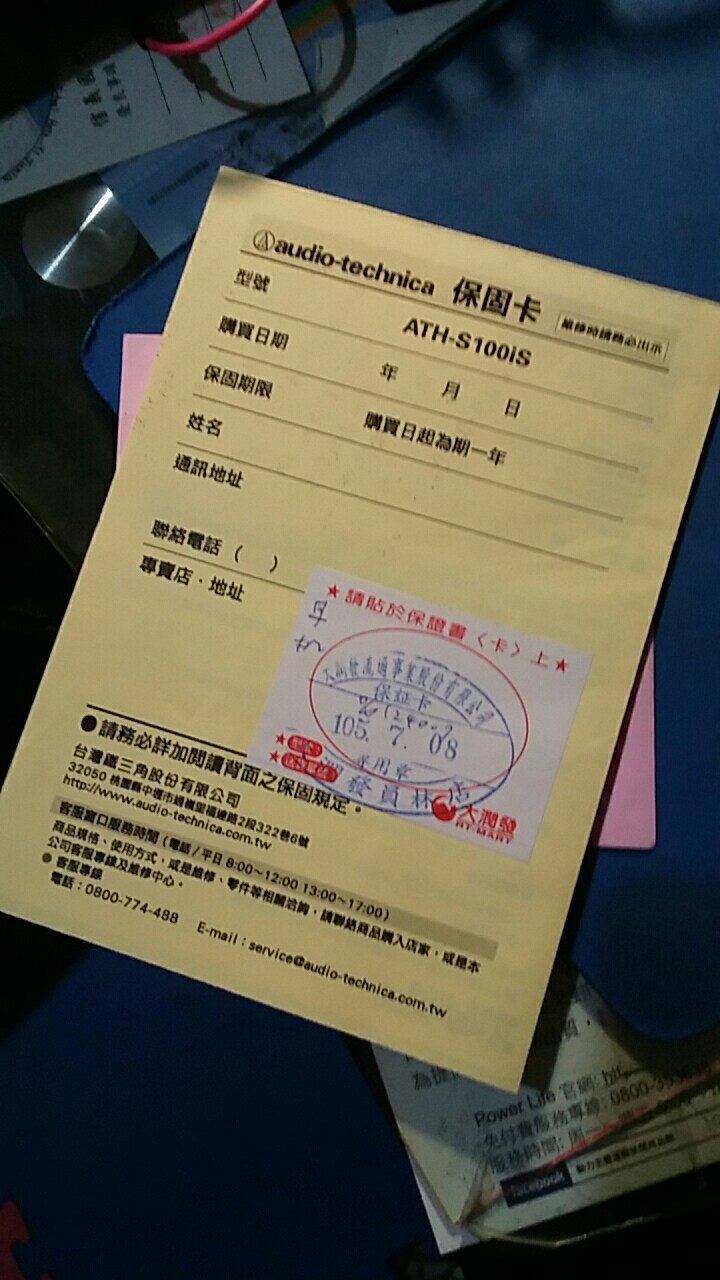 audio-technica 保固卡 維修時請務必出示
型號 ATH-S100iS
購買日期 年 月 日
保固期限 購買日起為期一年
姓名
通訊地址
聯絡電話 ( )
專賣店・地址
★請貼於保證書〈卡〉上★
耳
機
大潤發流通事業股份有限公司
保証卡
105. 7. 08
專用章
發員林店
大潤發
RT-MART
●請務必詳加閱讀背面之保固規定。
台灣鐵三角股份有限公司
32050 桃園縣中壢市過嶺里福達路2段322巷6號
http://www.audio-technica.com.tw
客服窗口服務時間 (電話/平日 8:00~12:00 13:00~17:00)
商品規格、使用方式，或是維修、零件等相關洽詢，請聯絡商品購入店家，或是本
公司客服專線及維修中心。
●客服專線
電話：0800-774-488 E-mail：service@audio-technica.com.tw
為提
Power Life 官網:
免付費服務專線: 0800-3
服務時間: 周
facebook